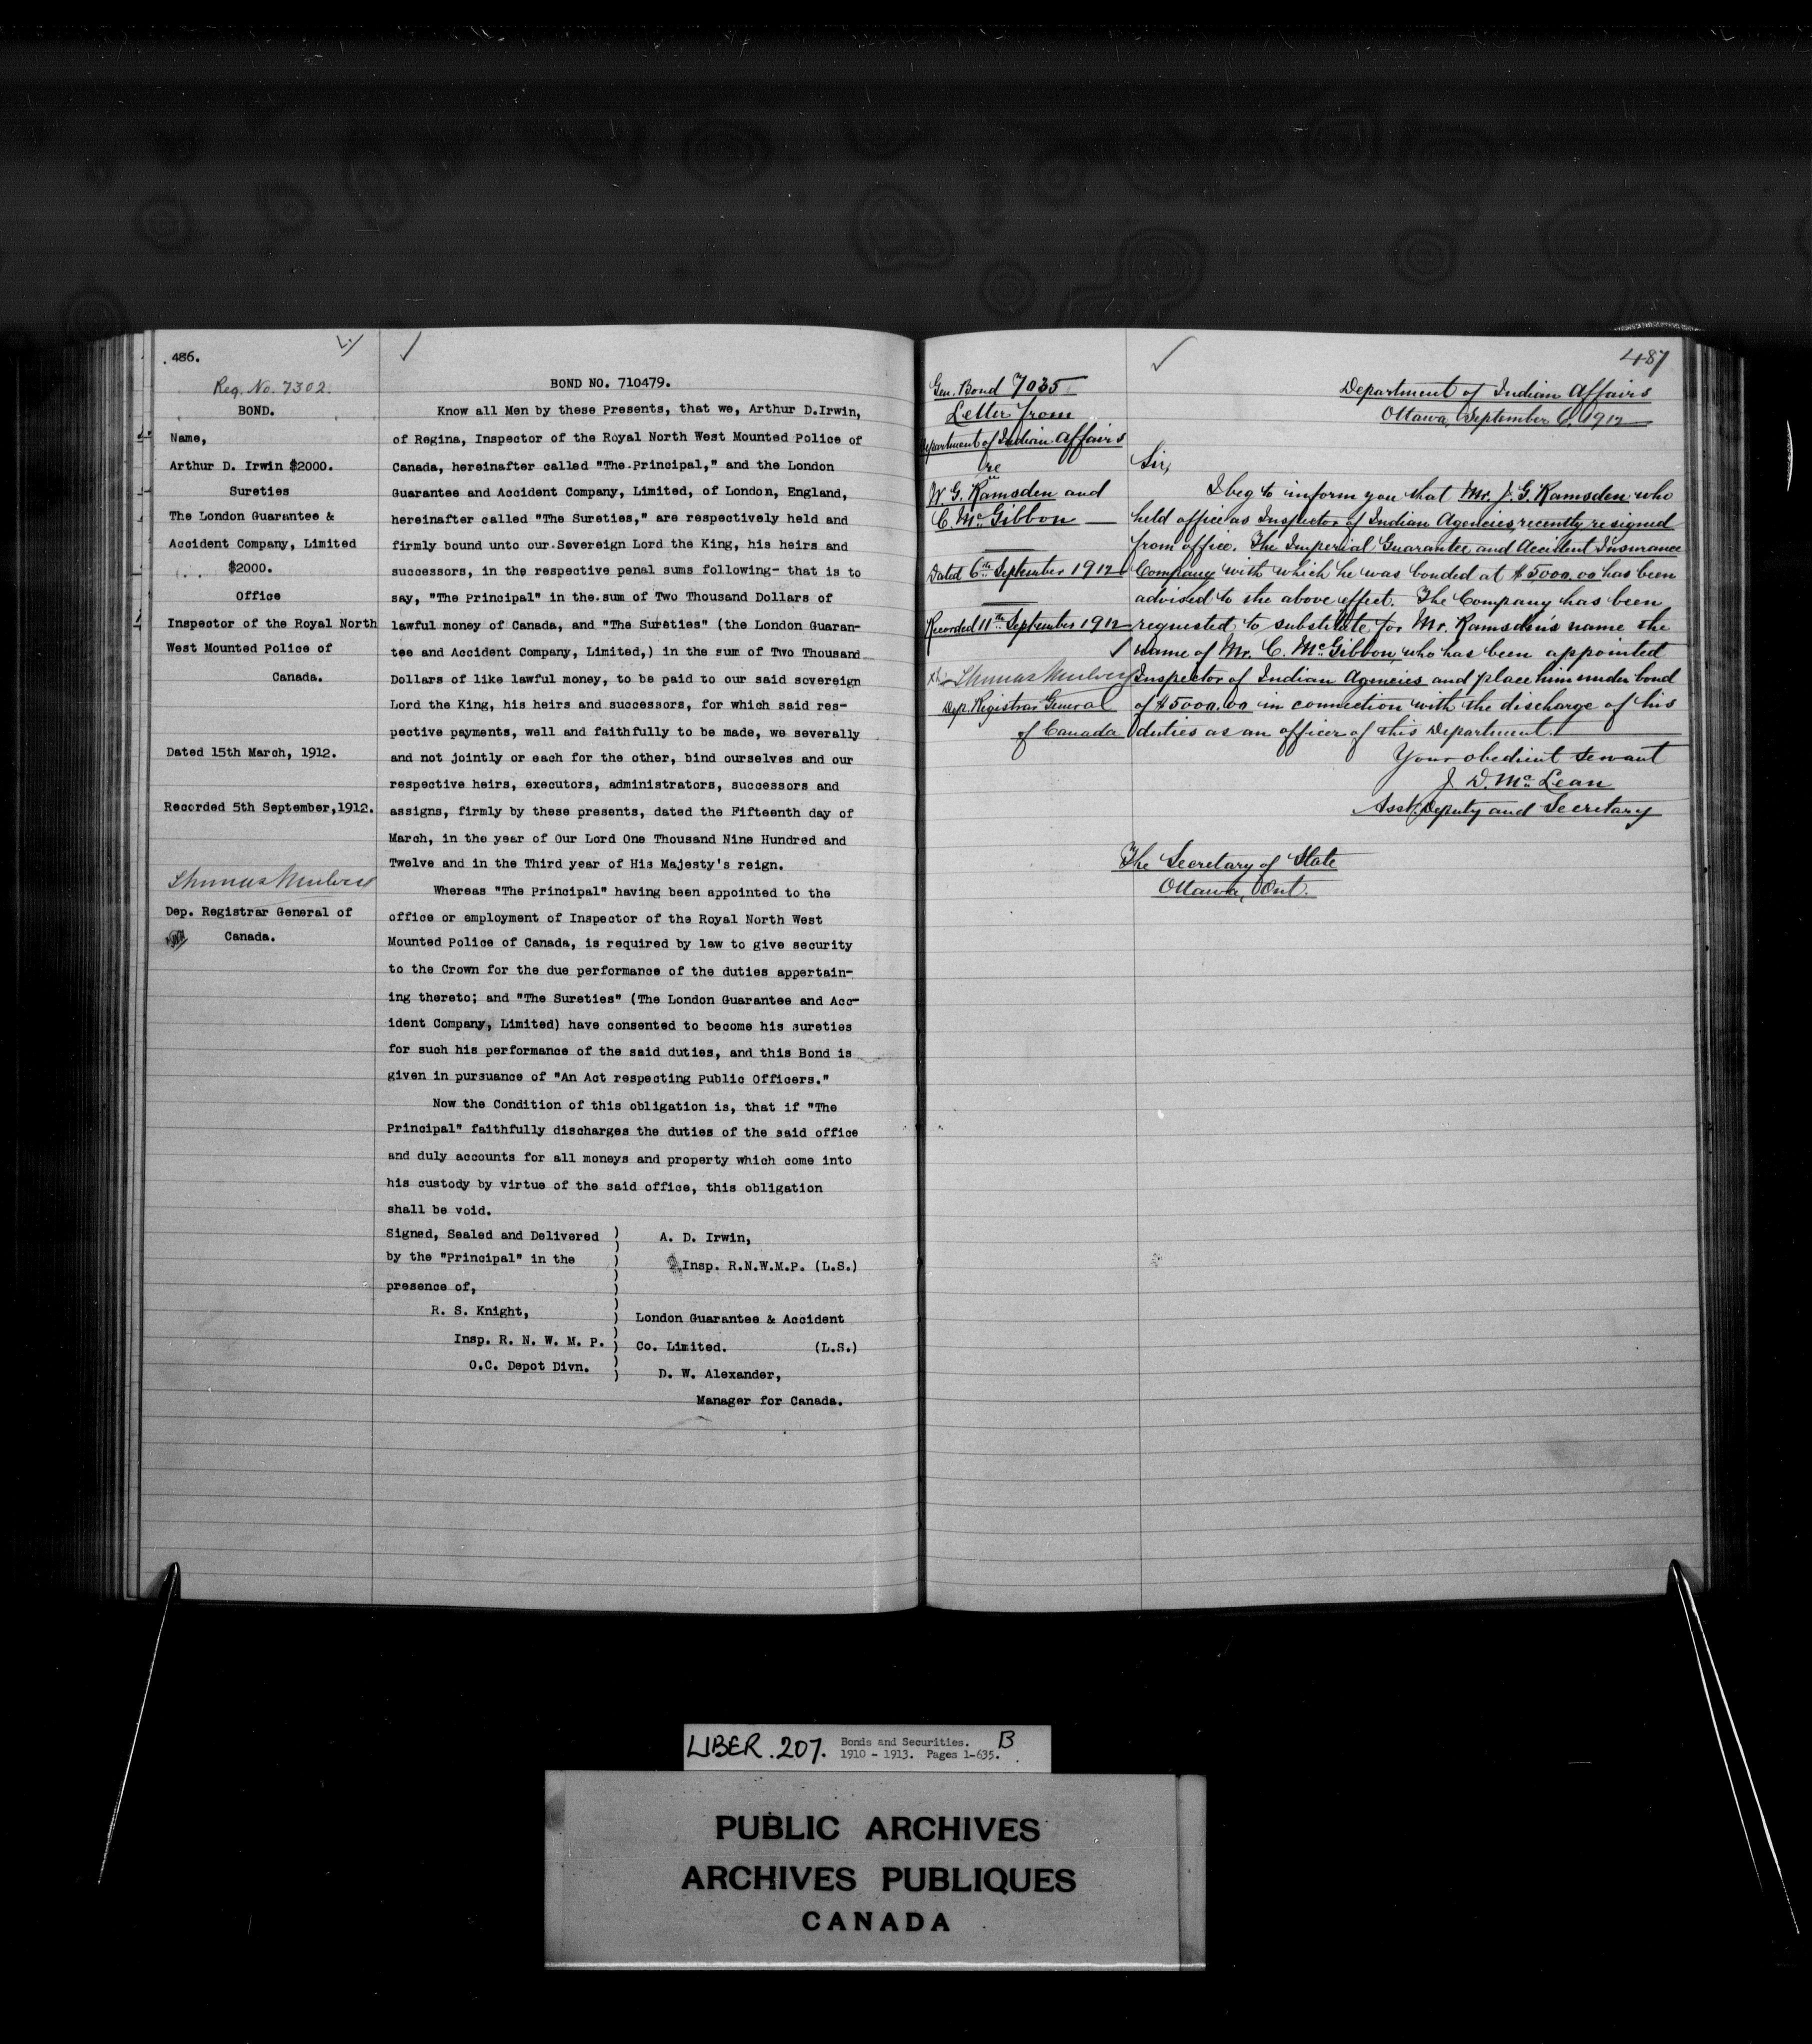 486.
Reg. No. 7302.
BOND.
Name,
Arthur D. Irwin $2000.
Sureties
The London Guarantee &
Accident Company, Limited
$2000.
Office
Inspector of the Royal North
West Mounted Police of
Canada.
Dated 15th March, 1912.
Recorded 5th September, 1912.
Thomas Mulvey
Dep. Registrar General of
Canada.
BOND NO. 710479.
Know all Men by these Presents, that we, Arthur D.Irwin,
of Regina, Inspector of the Royal North West Mounted Police of
Canada, hereinafter called "The Principal," and the London
Guarantee and Accident Company, Limited, of London, England,
hereinafter called "The Sureties," are respectively held and
firmly bound unto our Sovereign Lord the King, his heirs and
successors, in the respective penal sums following- that is to
say, "The Principal" in the sum of Two Thousand Dollars of
lawful money of Canada, and "The Sureties" (the London Guaran-
tee and Accident Company, Limited,) in the sum of Two Thousand
Dollars of like lawful money, to be paid to our said sovereign
Lord the King, his heirs and successors, for which said res-
pective payments, well and faithfully to be made, we severally
and not jointly or each for the other, bind ourselves and our
respective heirs, executors, administrators, successors and
assigns, firmly by these presents, dated the Fifteenth day of
March, in the year of Our Lord One Thousand Nine Hundred and
Twelve and in the Third year of His Majesty's reign.
Whereas "The Principal" having been appointed to the
office or employment of Inspector of the Royal North West
Mounted Police of Canada, is required by law to give security
to the Crown for the due performance of the duties appertain-
ing thereto; and "The Sureties" (The London Guarantee and Acc-
ident Company, Limited) have consented to become his sureties
for such his performance of the said duties, and this Bond is
given in pursuance of "An Act respecting Public Officers."
Now the Condition of this obligation is, that if "The
Principal" faithfully discharges the duties of the said office
and duly accounts for all moneys and property which come into
his custody by virtue of the said office, this obligation
shall be void.
Signed, Sealed and Delivered
by the "Principal" in the
presence of,
R. S. Knight,
Insp. R. N. W. M. P.
O.C. Depot Divn.
A. D. Irwin,
Insp. R.N.W.M.P. (L.S.)
London Guarantee & Accident
Co. Limited. (L.S.)
D. W. Alexander,
Manager for Canada.
487
Gen. Bond 7035
Letter from
Department of Indian Affairs
re
W. G. Ramsden and
C. McGibbon
Dated 6th September 1912
Recorded 11th September 1912
Thomas Mulvey
Dep. Registrar General
of Canada
Department of Indian Affairs
Ottawa, September 6, 1912
Sir,
I beg to inform you that Mr. J. G. Ramsden who
held office as Inspector of Indian Agencies, recently resigned
from office. The Imperial Guarantee and Accident Insurance
Company with which he was bonded at $5000.00 has been
advised to the above effect. The Company has been
requested to substitute for Mr. Ramsden's name the
name of Mr. C. McGibbon, who has been appointed
Inspector of Indian Agencies and place him under bond
of $5000.00 in connection with the discharge of his
duties as an officer of this Department.
Your obedient servant
J. D. McLean
Asst. Deputy and Secretary
The Secretary of State
Ottawa, Ont.
LIBER. 207. Bonds and Securities. B
1910 - 1913. Pages 1-635.
PUBLIC ARCHIVES
ARCHIVES PUBLIQUES
CANADA